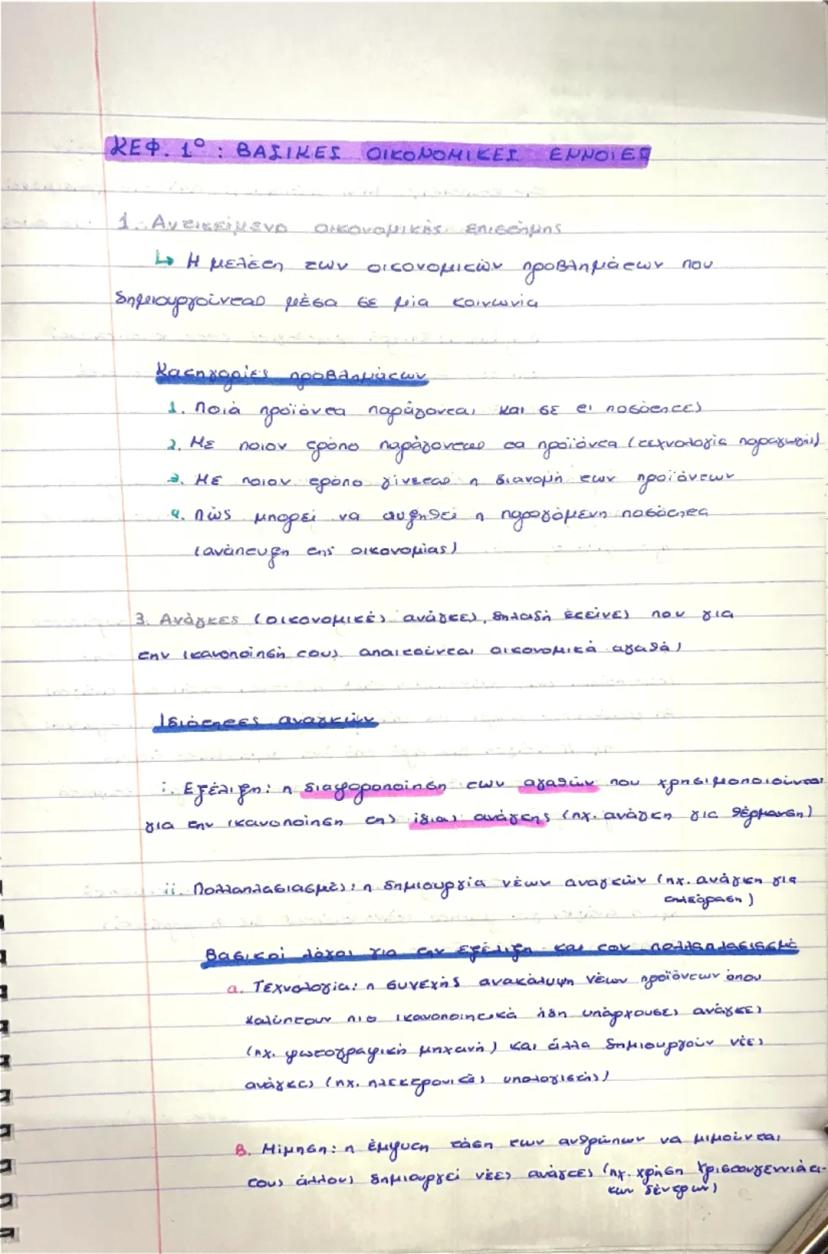 ΚΕΦ. 1º : ΒΑΣΙΚΕΣ ΟΙΚΟΝΟΜΙΚΕΣ ΕΝΝΟΙΕΣ
1. Αντικείμενο οικονομικής επιστήμης
↳ Η μελέτη των οικονομικών προβλημάτων που
δημιουργούνται μέσα σε μια κοινωνία
Κατηγορίες προβλημάτων
1. Ποιά προϊόντα παράγονται και σε τι ποσότητες
2. Με ποιον τρόπο παράγονται τα προϊόντα (τεχνολογία παραγωγής)
3. Με ποιον τρόπο γίνεται η διανομή των προϊόντων
4. Πώς μπορεί να αυξηθεί η παραγόμενη ποσότητα
(ανάπτυξη της οικονομίας)
3. Ανάγκες (οικονομικές ανάγκες, δηλαδή εκείνες που για
την ικανοποίησή τους απαιτούνται οικονομικά αγαθά)
Ιδιότητες αναγκών
i. Εξέλιξη: η διαφοροποίηση των αγαθών που χρησιμοποιούνται
για την ικανοποίηση της ίδιας ανάγκης (πχ. ανάγκη για θέρμανση)
ii. Πολλαπλασιασμός: η δημιουργία νέων αναγκών (πχ. ανάγκη για
τηλεόραση)
Βασικοί λόγοι για την εξέλιξη και τον πολλαπλασιασμό
α. Τεχνολογία: η συνεχής ανακάλυψη νέων προϊόντων όπου
καλύπτουν πιο ικανοποιητικά ήδη υπάρχουσες ανάγκες
(πχ. φωτογραφική μηχανή) και άλλα δημιουργούν νέες
ανάγκες (πχ. ηλεκτρονικός υπολογιστής)
β. Μίμηση: η έμφυτη τάση των ανθρώπων να μιμούνται
τους άλλους δημιουργεί νέες ανάγκες (πχ. χρήση Χριστουγεννιάτι-
κων δέντρων)